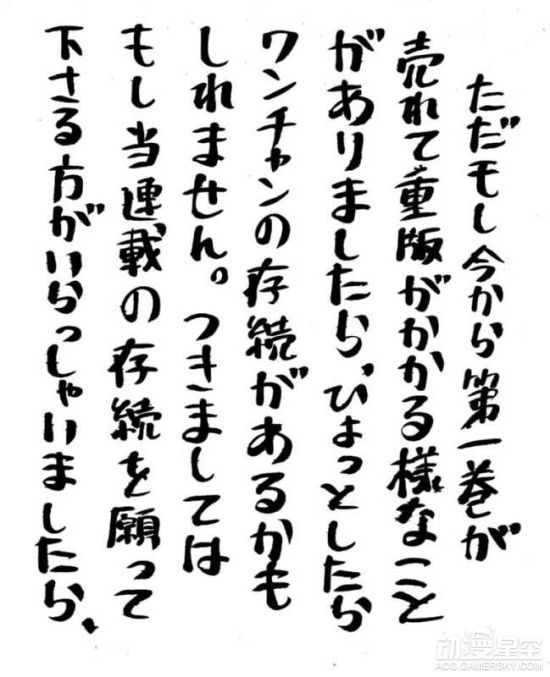 ただモし今から第一巻が
売れて重版がかかる様なこと
がありましたら、ひょっとしたら
ワンチャンの存続があるかも
しれません。つきましては
もし当連載の存続を願って
下さる方がいらっしゃいましたら、
动漫星空
ACG.GAMERSKY.COM